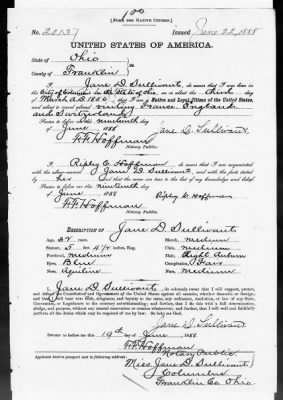 1 00
[FORM FOR NATIVE CITIZEN.]
No. 20137 Issued June 22, 1888
UNITED STATES OF AMERICA.
State of Ohio
County of Franklin
I, Jane D. Sullivant, do swear that I was born in the
City of Columbus in the State of Ohio, on or about the third day of
March A.D. 1856; that I am a Native and Loyal Citizen of the United States,
and about to travel abroad visiting France, England
and Switzerland
Sworn to before me this nineteenth day of
June 1888 Jane D. Sullivant
F. F. Hoffman
Notary Public.
I, Ripley C. Hoffman, do swear that I am acquainted
with the above-named Jane D. Sullivant, and with the facts stated
by her, and that the same are true to the best of my knowledge and belief.
Sworn to before me this nineteenth day of
June 1888 Ripley C. Hoffman
F. F. Hoffman
Notary Public.
DESCRIPTION OF Jane D. Sullivant
Age: 32 years. Mouth: medium
Stature: 5 feet 4 1/4 inches, Eng. Chin: medium
Forehead: medium Hair: Auburn
Eyes: Blue Complexion: Fair
Nose: Aquiline Face: Medium
I, Jane D. Sullivant, do solemnly swear that I will support, protect,
and defend the Constitution and Government of the United States against all enemies, whether domestic or foreign;
and that I will bear true faith, allegiance, and loyalty to the same, any ordinance, resolution, or law of any State,
Convention, or Legislature to the contrary notwithstanding; and further, that I do this with a full determination,
pledge, and purpose, without any mental reservation or evasion whatsoever; and further, that I will well and faithfully
perform all the duties which may be required of me by law: So help me God.
Jane D. Sullivant
Sworn to before me this 19th day of June 1888.
F. F. Hoffman
Notary Public.
Applicant desires passport sent to following address:
Miss Jane D. Sullivant
Columbus
Franklin Co. Ohio